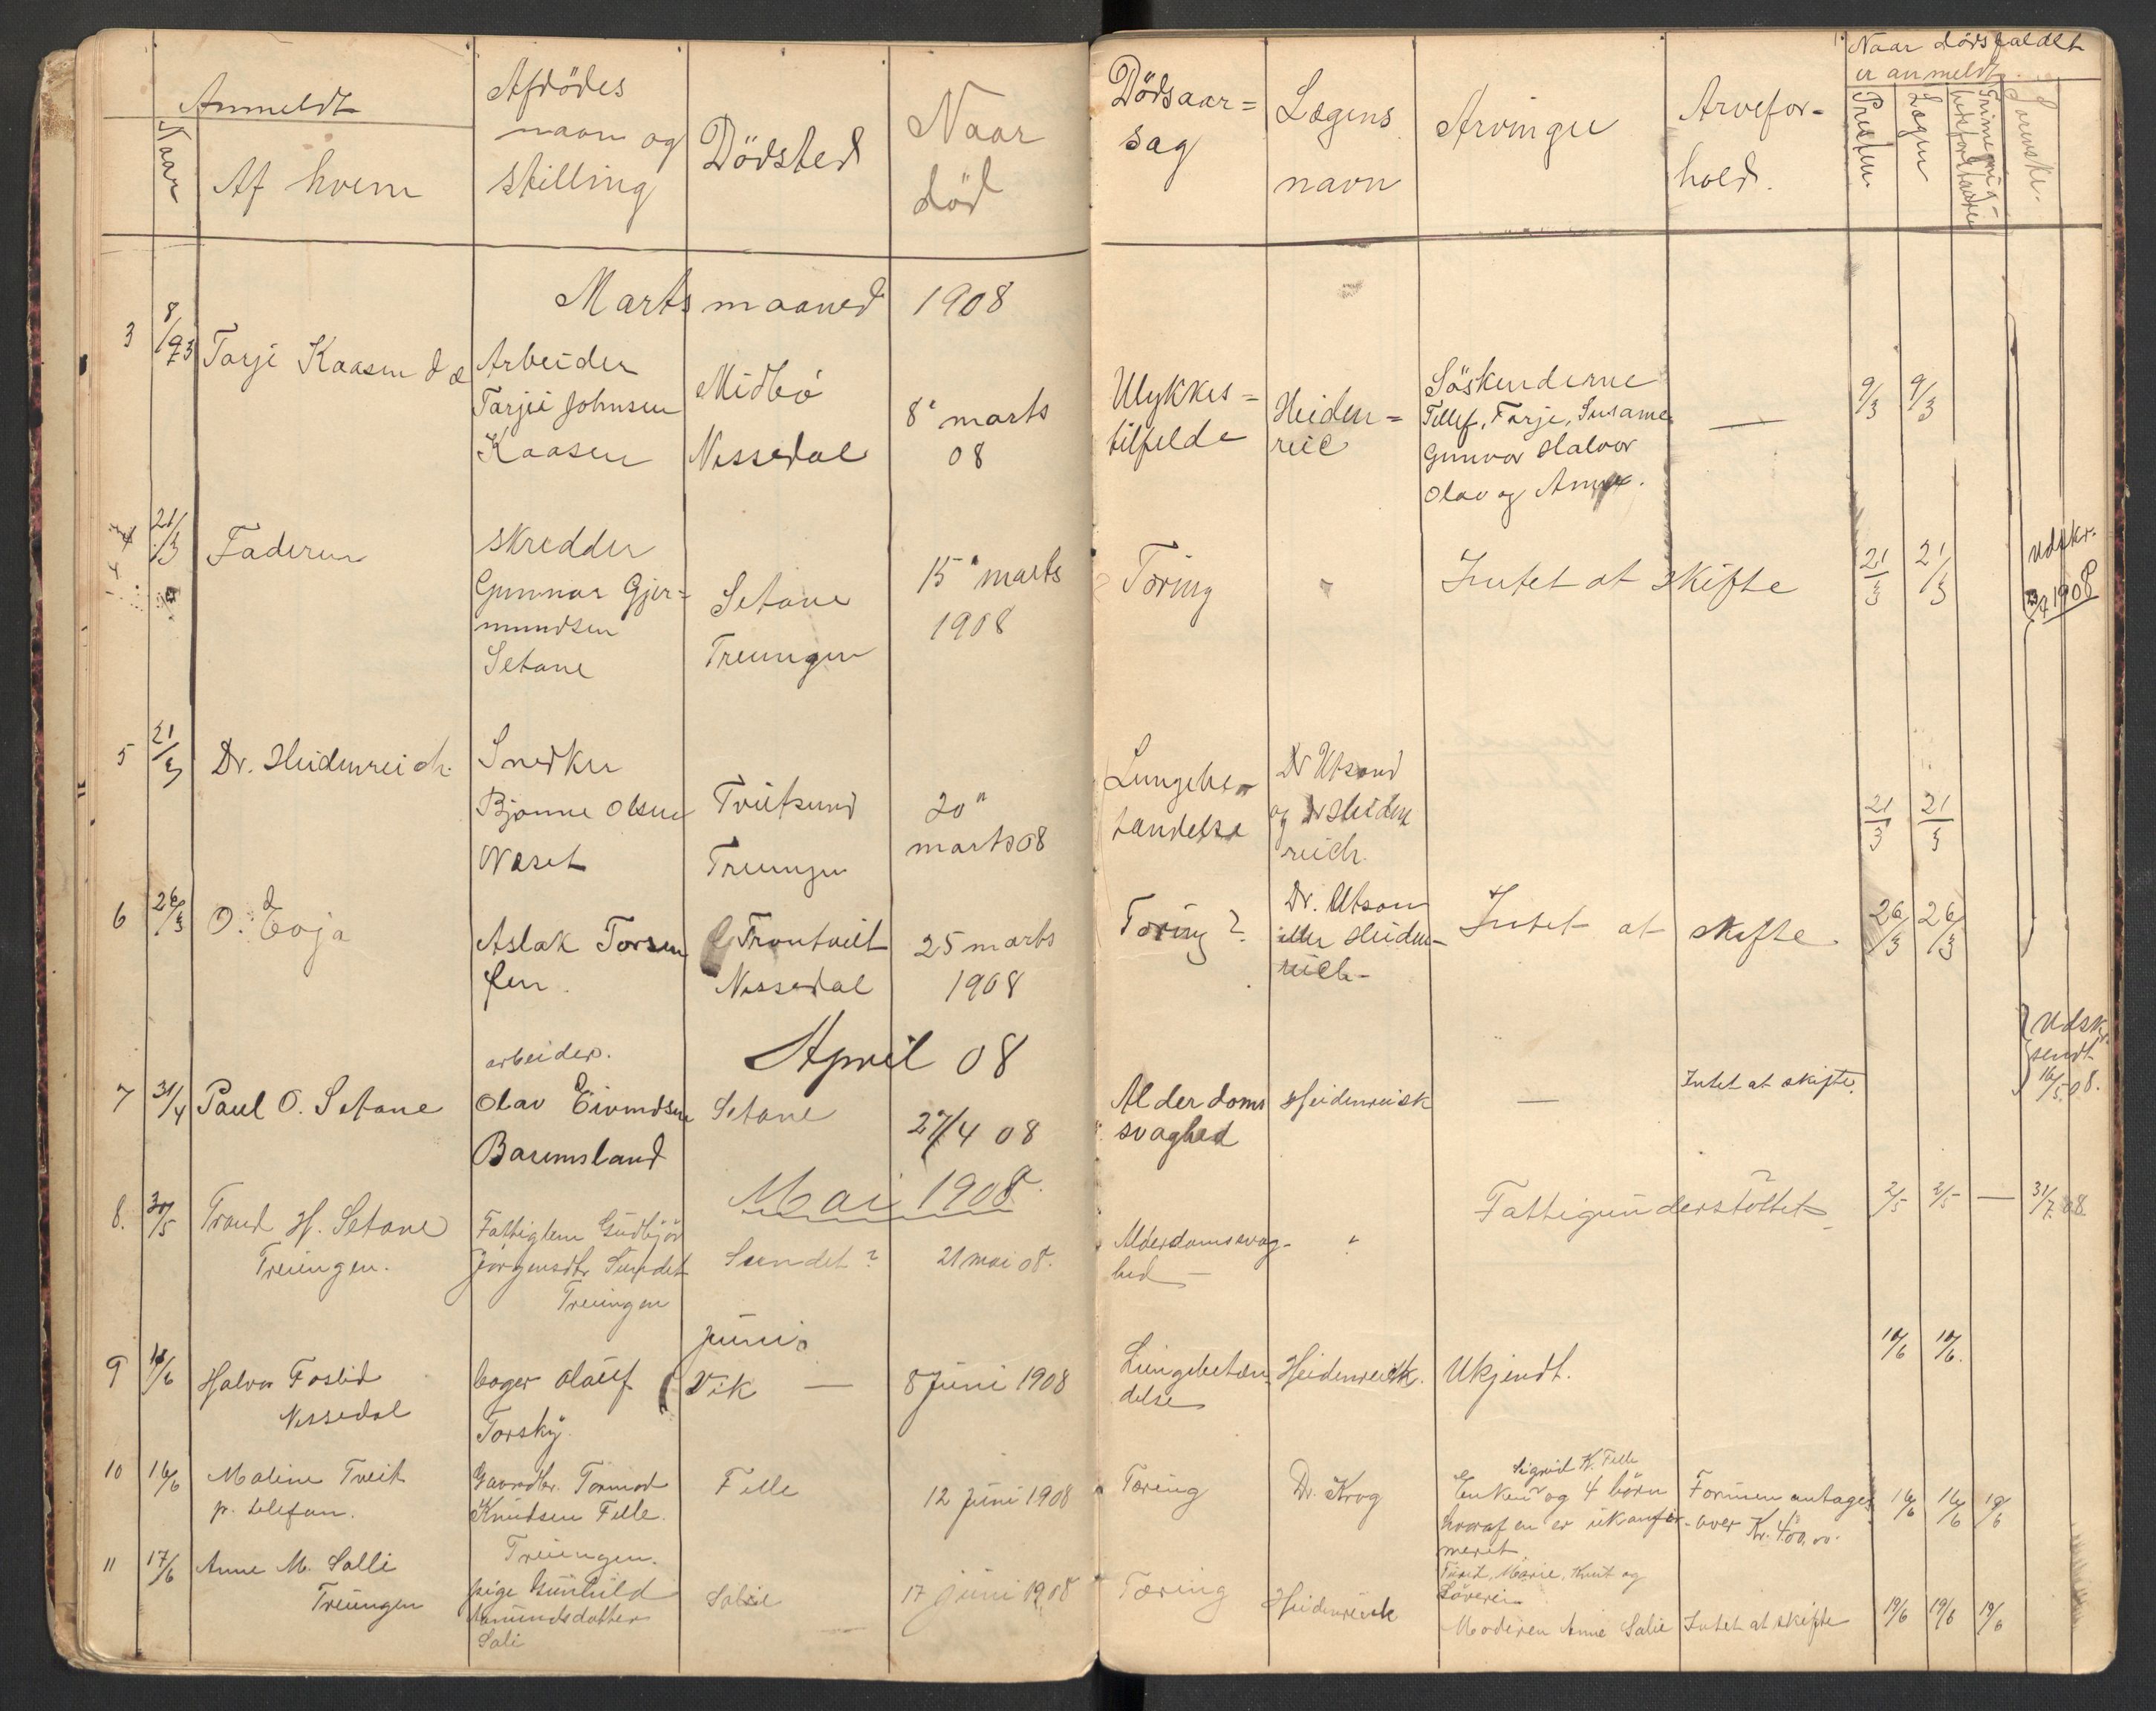 Anmeldt
Naar
Af hvem
Afdödes
navn og
stilling
Dödsted
Naar
död
Dödsaar=
sag
Lægens
navn
Arvinger
Arvefor-
hold.
Naar dödsfaldet
er anmeldt
Presten
Lægen
Sorenskr.
Marts maaned 1908
3
8/3
Tarje Kaasen
Arbeider
Tarjei Johnsen
Kaasen
Midbö
Nissedal
8' marts
08
Ulykkes=
tilfelde
Heiden=
reic
Söskenderne
Tellef, Tarje, Susame
Gunvor Halvor
Olav og Anne.
—
9/3
9/3
4
21/3
Faderen
skredder
Gunnar Gjer=
mundsen
Setane
Setane
Treungen
15' marts
1908
Tæring
"
Intet at skifte
21/3
21/3
Udskr.
23/4 1908
5
21/3
Dr. Heidenreich.
Snedker
Bjarne Olsen
Næset
Tveitsund
Treungen
20"
marts 08
Lungebe=
tændelse
Dr Utsond
og Dr Heiden
reich.
21/3
21/3
6
26/3
O. Evja
Aslak Torsen
Fen.
Trontveit
Nissedal
25 marts
1908
Tæring?
Dr. Utson
eller Heiden-
reich-
Intet at skifte.
26/3
26/3
April 08
7
31/4
Paul O. Setane
arbeider.
Olav Eivindsen
Barumsland
Setane
27/4 08
Alderdoms
svaghed
Heidenreisk
—
Intet at skifte.
Udskr.
sendt
16/5 08.
Mai 1908.
8.
30/5
Trond H. Setane
Treungen.
Fattiglem Gudbjör
Jörgensdtr Sundet
Treungen
Sundet?
21 mai 08.
Alderdomssvag-
hed —
"
Fattigunderstöttet
2/5
2/5
—
31/7 08
Juni.
9
10/6
Halvor Fosli
Nissedal
bager Olauf
Torsky.
Vik —
8 Juni 1908
Lungebetæn-
delse
Heidenreisk.
Ukjendt.
10/6
10/6.
10
16/6
Maline Tveit
pr. telefon.
Gaardbr. Tormod
Knudsen Felle.
Treungen.
Felle
12 Juni 1908
Tæring
Dr. Krog
Sigrid K. Felle
Enken og 4 börn
hvoraf en er ukonfir-
meret
Turid, Marie, Knut og
Formuen antages
over Kr. 400,00.
16/6
16/6
18/6
11
17/6
Anne M. Salli
Treungen
pige Gunhild
Aamundsdatter
Sali
Salie
17 juni 1908
Tæring
Heidenreisk
Moderen Anne Salie
Intet at skifte
19/6
19/6
19/6